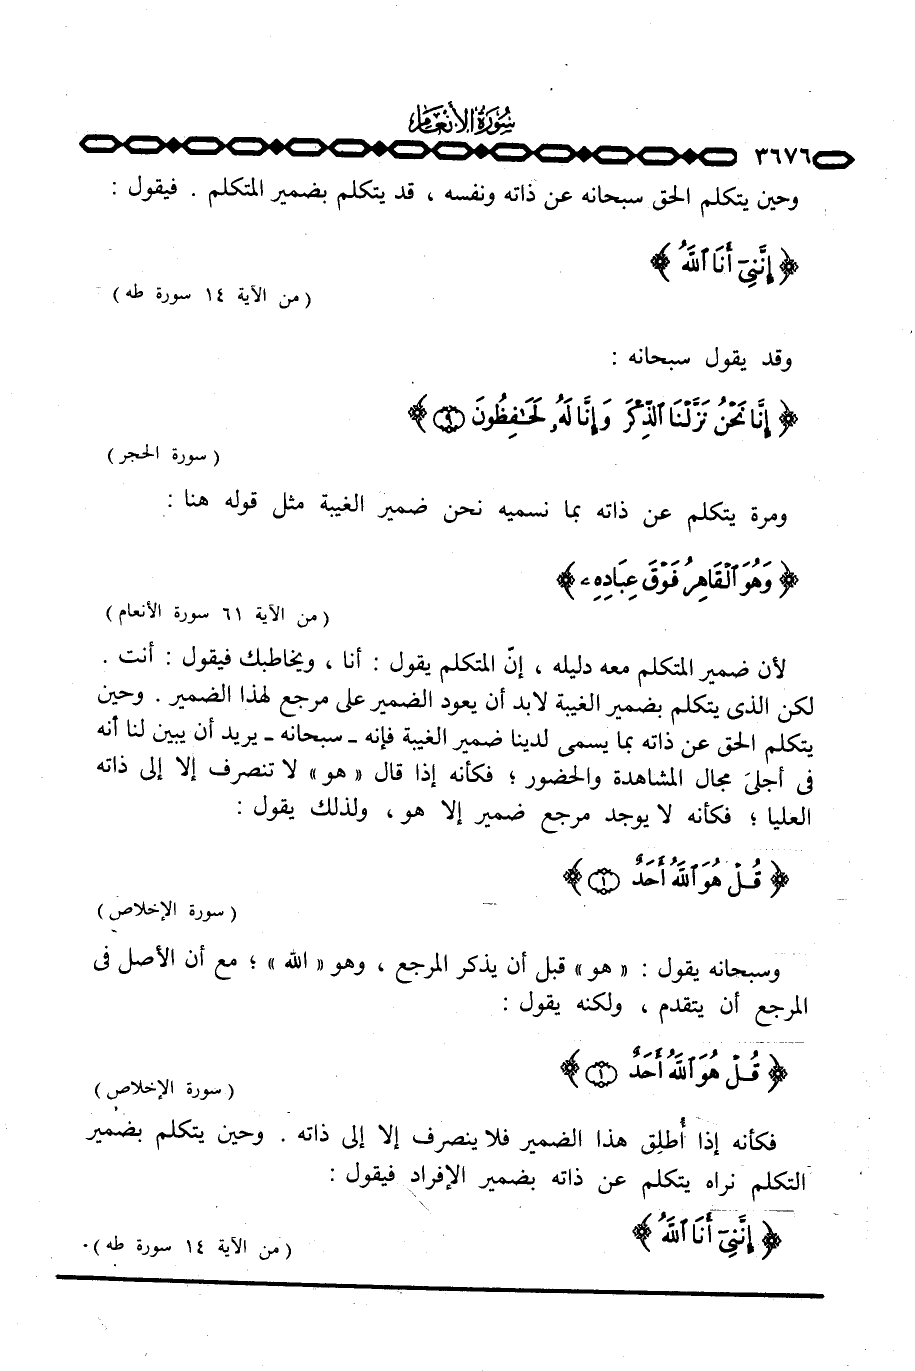 سورة الأنعام
٣٦٧٦
وحين يتكلم الحق سبحانه عن ذاته ونفسه ، قد يتكلم بضمير المتكلم . فيقول :
﴿ إِنَّنِىٓ أَنَا ٱللَّهُ ﴾
( من الآية ١٤ سورة طه )
وقد يقول سبحانه :
﴿ إِنَّا نَحْنُ نَزَّلْنَا ٱلذِّكْرَ وَإِنَّا لَهُۥ لَحَٰفِظُونَ ۝٩ ﴾
( سورة الحجر )
ومرة يتكلم عن ذاته بما نسميه نحن ضمير الغيبة مثل قوله هنا :
﴿ وَهُوَ ٱلْقَاهِرُ فَوْقَ عِبَادِهِۦ ﴾
( من الآية ٦١ سورة الأنعام )
لأن ضمير المتكلم معه دليله ، إنّ المتكلم يقول : أنا ، ويخاطبك فيقول : أنت .
لكن الذى يتكلم بضمير الغيبة لابد أن يعود الضمير على مرجع لهذا الضمير . وحين
يتكلم الحق عن ذاته بما يسمى لدينا ضمير الغيبة فإنه ـ سبحانه ـ يريد أن يبين لنا أنه
فى أجلىَ مجال المشاهدة والحضور ؛ فكأنه إذا قال « هو » لا تنصرف إلا إلى ذاته
العليا ؛ فكأنه لا يوجد مرجع ضمير إلا هو ، ولذلك يقول :
﴿ قُلْ هُوَ ٱللَّهُ أَحَدٌ ۝١ ﴾
( سورة الإخلاص )
وسبحانه يقول : « هو » قبل أن يذكر المرجع ، وهو « الله » ؛ مع أن الأصل فى
المرجع أن يتقدم ، ولكنه يقول :
﴿ قُلْ هُوَ ٱللَّهُ أَحَدٌ ۝١ ﴾
( سورة الإخلاص )
فكأنه إذا أُطلِق هذا الضمير فلا ينصرف إلا إلى ذاته . وحين يتكلم بضمير
التكلم نراه يتكلم عن ذاته بضمير الإفراد فيقول :
﴿ إِنَّنِىٓ أَنَا ٱللَّهُ ﴾
( من الآية ١٤ سورة طه ) .